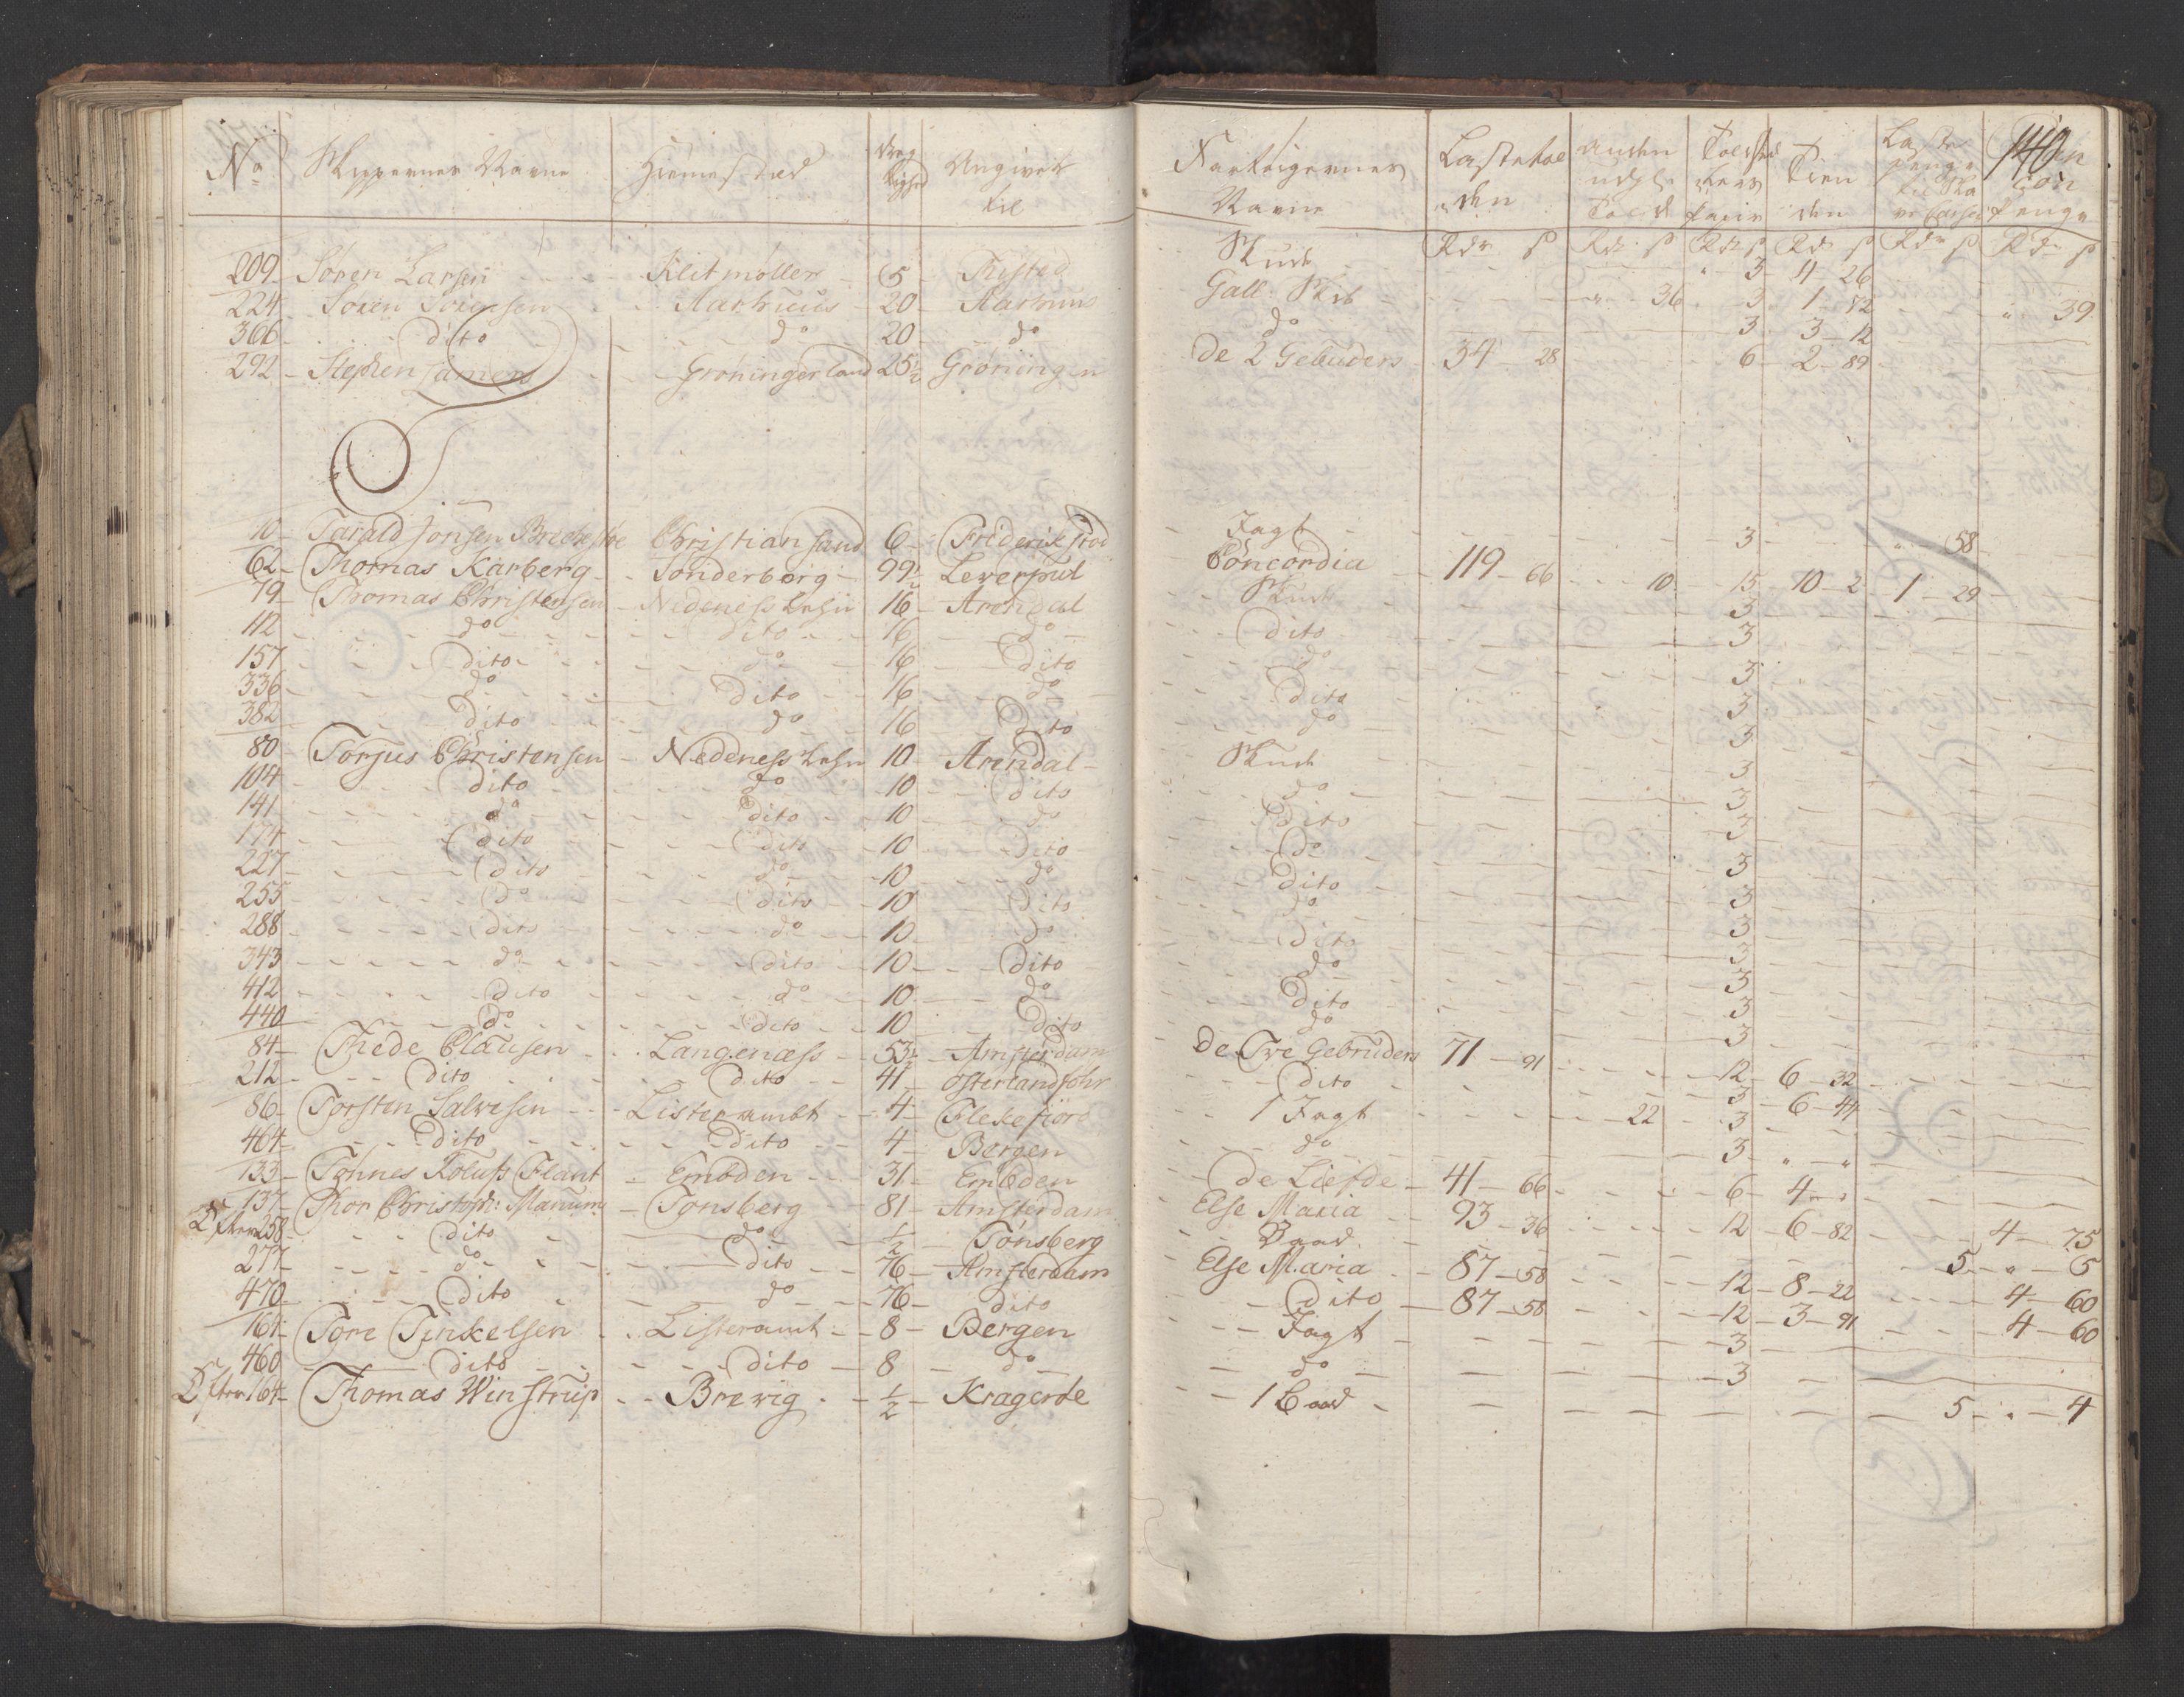 No Skippernes Navne Hiemsted Dræg tighed Angivet til
209 Søren Larsen Klitmøller 5 Thisted
224 Søren Sørensen Aarhuus 20 Aarhuus
366 dito do 20 do
292 Stephen Jamens Gröningerland 25½ Gröningen
10 Tarald Jonsen Brechestøe Christiansand 6 Friderikstad
62 Thomas Karberg Sonderborg 99½ Leverpul
79 Thomas Christensen Nedeness Lehn 16 Arendal
112 do dito 16 do
157 dito do 16 dito
336 do dito 16 do
382 dito do 16 Dito
80 Torjus Christensen Nedeness Lehn 10 Arendal
104 dito do 10 dito
141 do dito 10 do
174 dito dito 10 Dito
227 dito do 10 do
255 do dito 10 dito
288 dito do 10 do
343 do dito 10 dito
412 dito do 10 do
440 do dito 10 dito
84 Thede Clausen Langenæss 53½ Amsterdam
212 dito dito 41 Osterlandföhr
86 Torsten Salvesen Listerambt 4 Flekefiord
464 dito dito 4 Bergen
133 Tönnes Rolufs Flant Embden 31 Embden
137 Thor Christoph: Manum Tonsberg 81 Amsterdam
258 dito do ½ Tönsberg
277 do dito 76 Amsterdam
470 dito do 76 dito
161 Tore Tinkelsen Listeramt 8 Bergen
460 dito dito 8 do
164 Thomas Winstrup Brevig ½ Kragerøe
140
Fartøigernes Navne Lastetolden Anden udgl. Told Tien den
Rdr ß Rdr ß Rdr ß Rdr ß Rdr ß Rdr ß
Skude 3 4 26
Gall. Skib 36 3 1 52 39
do 3 3 12
De 2 Gebuders 34 28 6 2 89
Jagt 3 58
Concordia 119 66 10 15 10 2 1 29
Skude 3
dito 3
do 3
Dito 3
do 3
Skude 3
do 3
Dito 3
do 3
Dito 3
do 3
Dito 3
do 3
Dito 3
do 3
De Tve Gebruders 71 91 12 6 32
dito 3 6 44
1 Jagt 22 3
do 3
de Liefde 41 66 6 4
Else Maria 93 36 12 6 82 4 75
Baad 5 5
Else Maria 87 58 12 8 22 4 60
Dito 87 58 12 3 91 4 60
Jagt 3
do 3
1 Baad 5 4